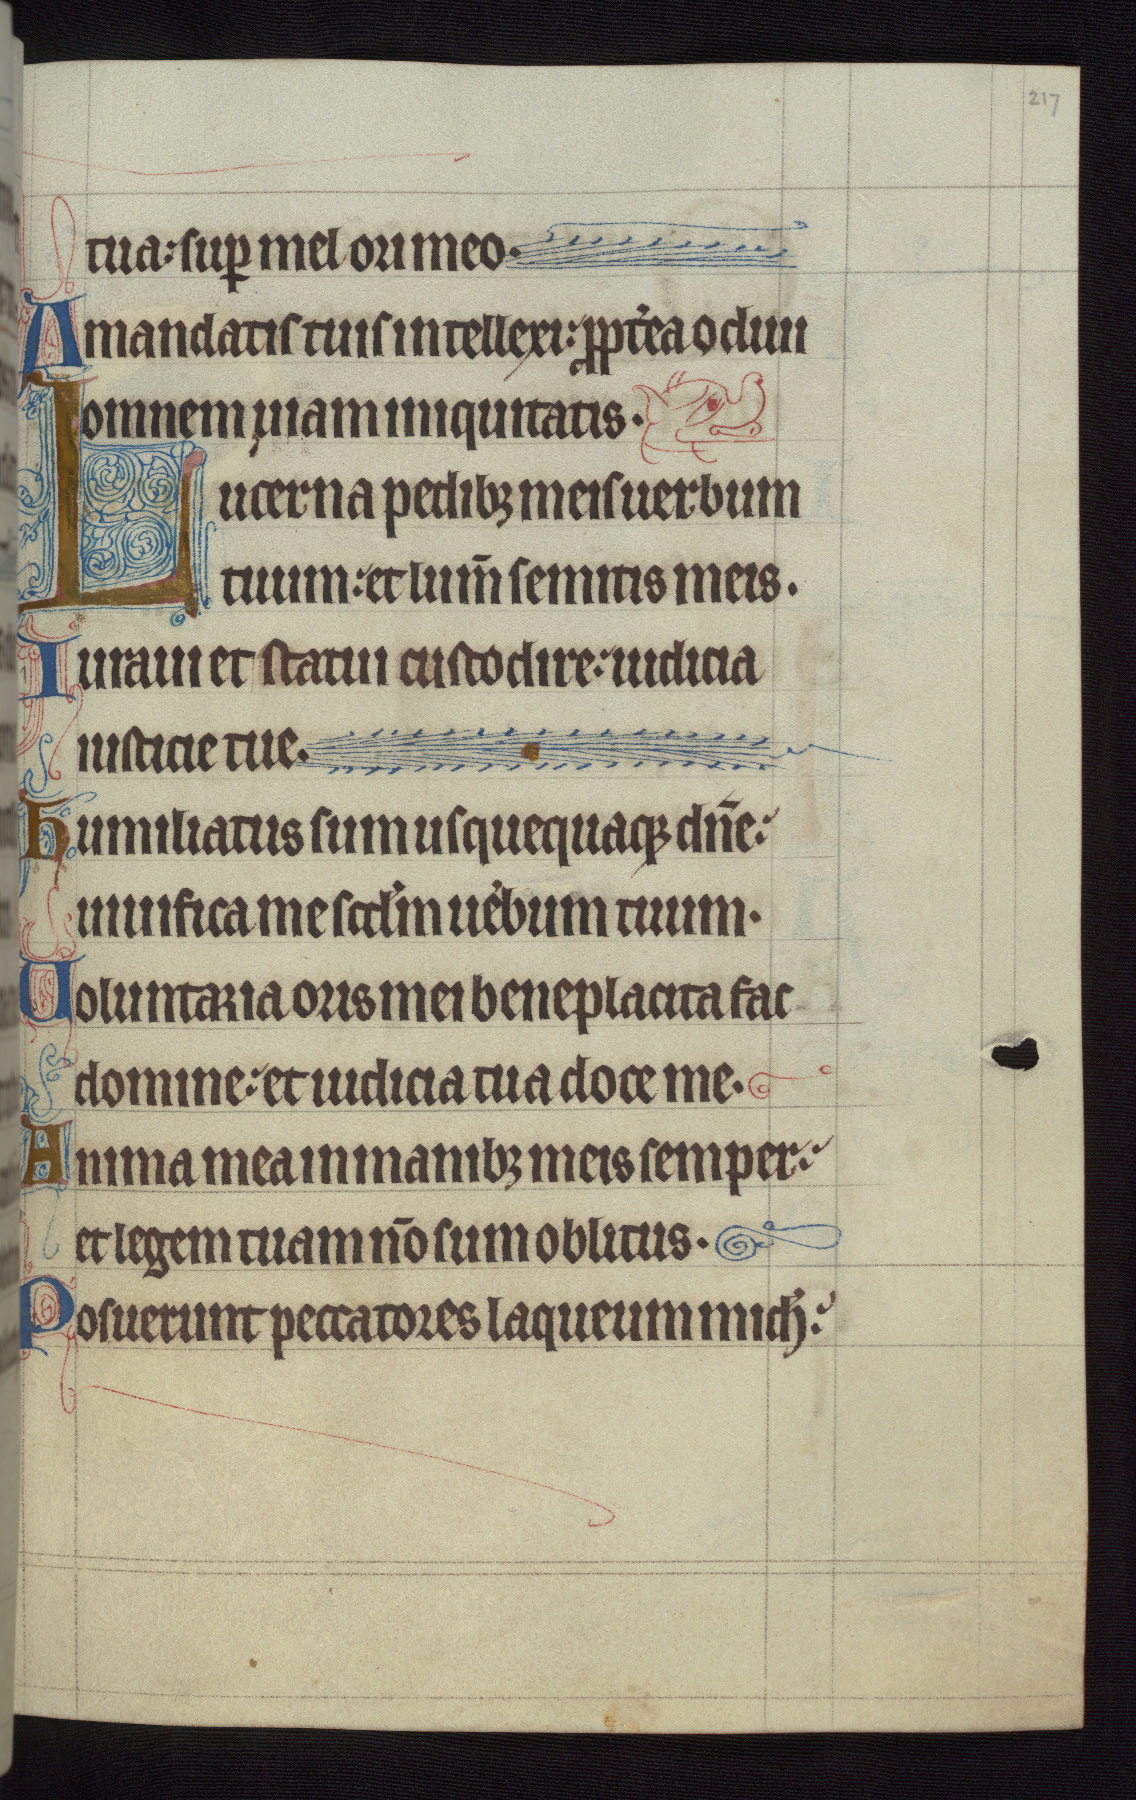 217
tua: sup̱ mel ori meo.
A mandatis tuis intellexi: ꝓpt̾ea odiui
omnem uiam iniquitatis.
Lucerna pedibꝫ meis uerbum
tuum: et lum̄ semitis meis.
Iuraui et statui custodire: iudicia
iusticie tue.
Humiliatus sum usquequaqꝫ dn̄e:
uiuifica me scd̾m ue̾bum tuum.
Uoluntaria oris mei beneplacita fac
domine: et iudicia tua doce me.
Anima mea in manibꝫ meis semper:
et legem tuam nō sum oblitus.
Posuerunt peccatores laqueum mich̾: